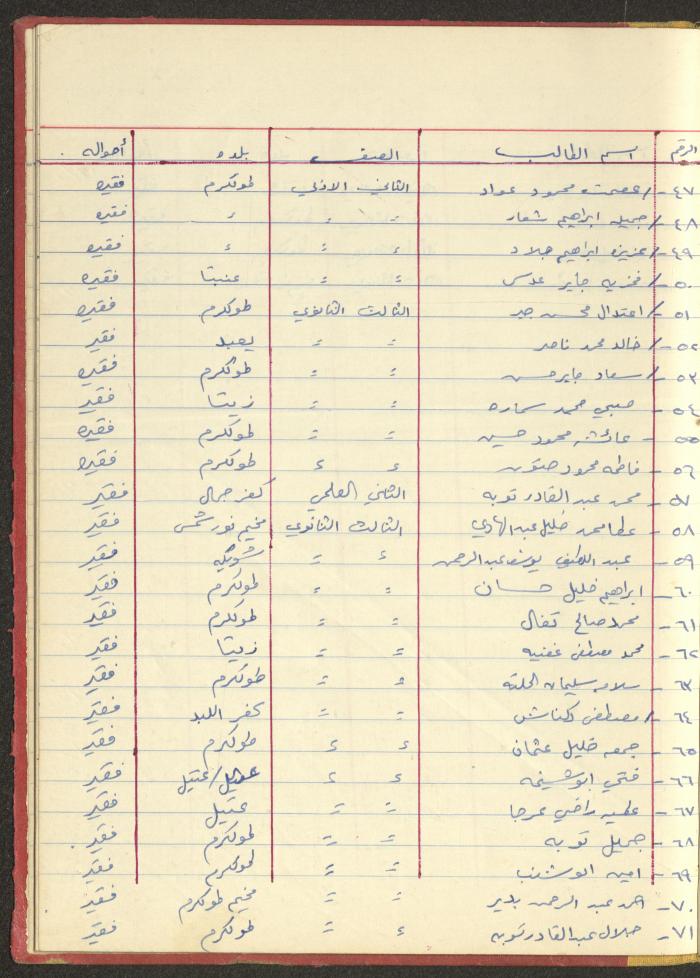 الرقم اسم الطالب الصف بلده أحواله
٤٧ - / عصمت محمود عواد الثاني الادبي طولكرم فقيره
٤٨ - / جميله ابراهيم شعار = = = فقيره
٤٩ - / عزيزه ابراهيم جلاد = = = فقيره
٥٠ - / فخريه جابر عدس = = عنبتا فقيره
٥١ - / اعتدال محسن جبر الثالث الثانوي طولكرم فقيره
٥٢ - / خالد محمد ناصر = = يعبد فقير
٥٣ - / سعاد جابر حسن = = طولكرم فقيره
٥٤ - صبحي محمد سماره = = زيتا فقير
٥٥ - عائشه محمود حسين = = طولكرم فقيره
٥٦ - فاطمه محمود = = طولكرم فقيره
٥٧ - محمد عبد القادر توبه الثاني العلمي كفر جمال فقير
٥٨ - عطا محمد خليل عبد الهادي الثالث الثانوي مخيم نور شمس فقير
٥٩ - عبد اللطيف يوسف عبد الرحمن = = شويكه فقير
٦٠ - ابراهيم خليل حسان = = طولكرم فقير
٦١ - محمد صالح = = طولكرم فقير
٦٢ - محمد مصطفى = = زيتا فقير
٦٣ - سلامه سليمان = = طولكرم فقير
٦٤ - / مصطفى = = كفر اللبد فقير
٦٥ - جمعه خليل عثمان = = طولكرم فقير
٦٦ - فتحي ابو شيخه = = عتيل فقير
٦٧ - عطيه راضي عرجا = = عتيل فقير
٦٨ - جميل توبه = = طولكرم فقير
٦٩ - امين ابو شنب = = طولكرم فقير
٧٠ - احمد عبد الرحمن بدير = = مخيم طولكرم فقير
٧١ - جلال عبد القادر توبه = = طولكرم فقير